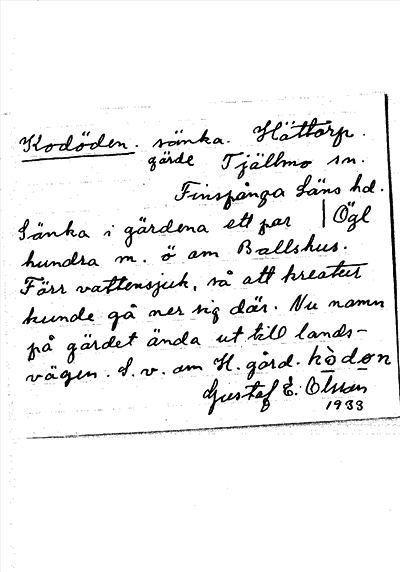 Kodöden. sänka. Hättorp.
gärde Tjällmo sn.
Finspånga läns hd.
Sänka i gärdena ett par | Ögl
hundra m. ö om Ballshus.
Förr vattensjuk, så att kreatur
kunde gå ner sig där. Nu namn
på gärdet ända ut till lands-
vägen. S. v. om H. gård. kòdøn
Gustaf E. Olsson
1933